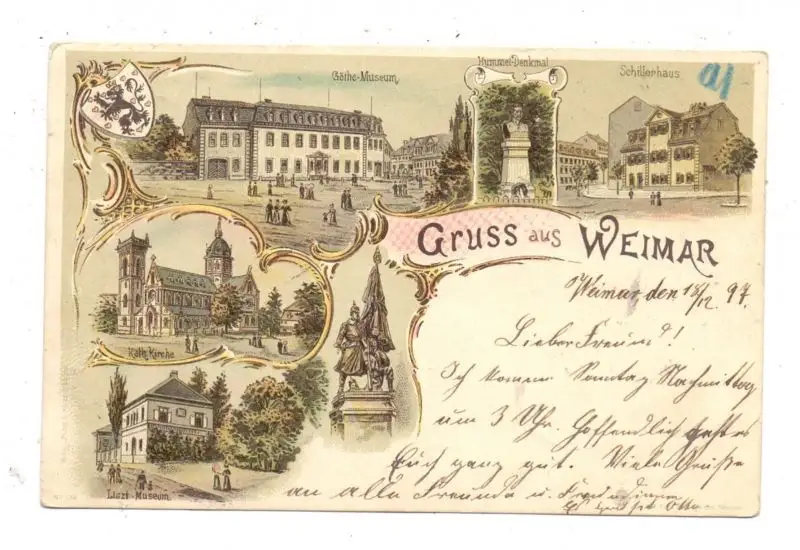 Göthe-Museum
Hummel-Denkmal
Schillerhaus
Gruss aus Weimar
Kath. Kirche
Liszt-Museum
Weimar, den 18/12 97.
Lieber Freund!
Ich komme Sonntag Nachmittag
um 3 Uhr. Hoffendlich geht es
Euch ganz gut. Viele Grüße
an alle Freunde u. Freundinnen
Otto